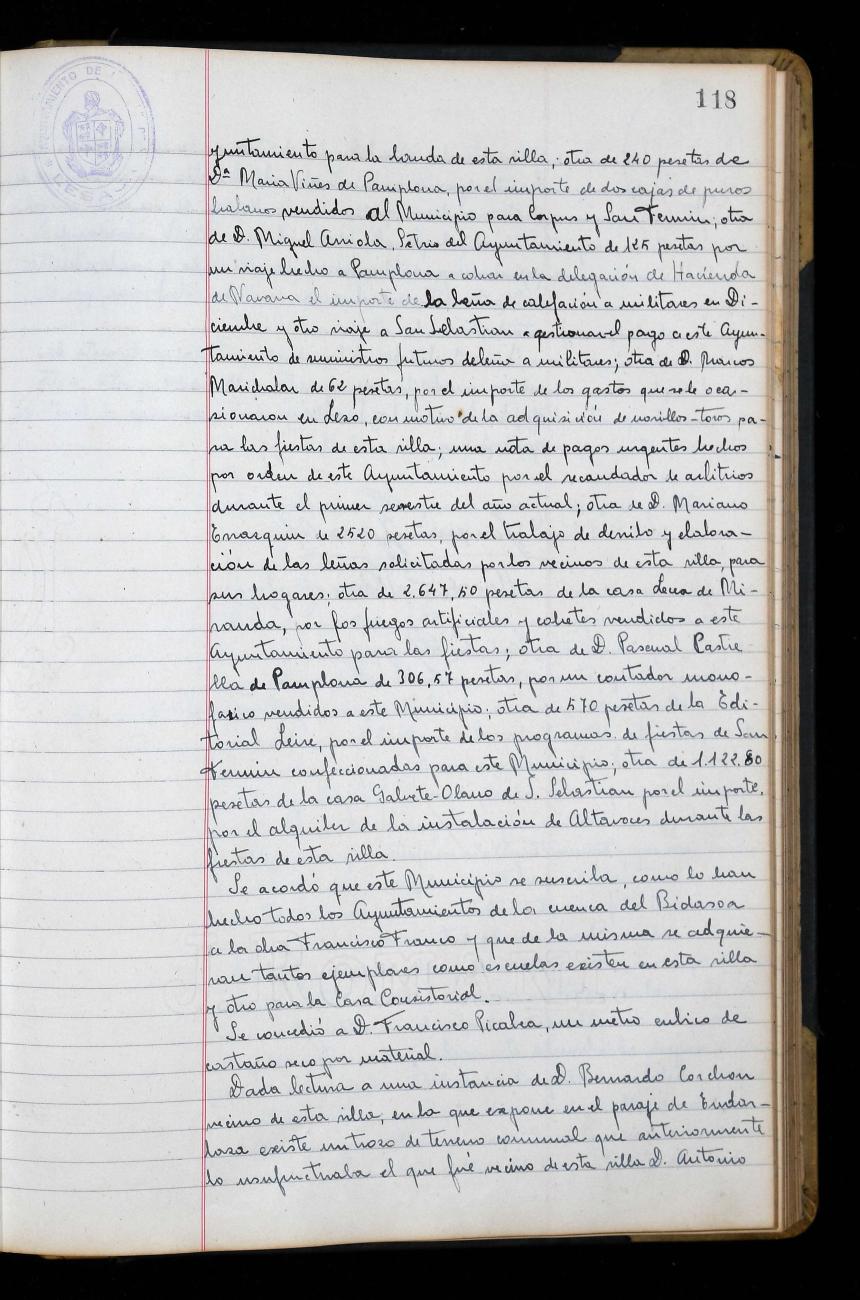 118
AYUNTAMIENTO DE
LESACA
yuntamiento para la banda de esta villa; otra de 240 pesetas de
Dª Maria Viñes de Pamplona, por el importe de dos cajas de puros
habanos vendidos al Municipio para Corpus y San Fermin; otra
de D. Miguel Arriola, Setrio del Ayuntamiento de 125 pesetas por
un viaje hecho a Pamplona a cobrar en la delegación de Hacienda
de Navarra el importe de la leña de calefación a militares en Di-
ciembre y otro viaje a San Sebastian a gestionar el pago a este Ayun-
tamiento de suministros futuros de leña a militares; otra de D. Marcos
Marichalar de 62 pesetas, por el importe de los gastos que se le oca-
sionaron en Lezo, con motivo de la adquisición de novillos-toros pa-
ra las fiestas de esta villa; una nota de pagos urgentes hechos
por orden de este Ayuntamiento por el recaudador de arbitrios
durante el primer semestre del año actual; otra de D. Mariano
de 2520 pesetas, por el trabajo de derribo y elabora-
ción de las leñas solicitadas por los vecinos de esta villa, para
sus hogares; otra de 2.647,50 pesetas de la casa Lecea de Mi-
randa, por fos fuegos artificiales y cohetes vendidos a este
Ayuntamiento para las fiestas; otra de D. Pascual Castie
lla de Pamplona de 306,57 pesetas, por un contador mono-
fasico vendidos a este Municipio; otra de 570 pesetas de la Edi-
torial Leire, por el importe de los programas de fiestas de San
Fermin confeccionadas para este Municipio; otra de 1.122.80
pesetas de la casa Galvete-Olano de S. Sebastian por el importe,
por el alquiler de la instalación de Altavoces durante las
fiestas de esta villa.
Se acordó que este Municipio se suscriba, como lo han
hecho todos los Ayuntamientos de la cuenca del Bidasoa
a la obra Francisco Franco y que de la misma se adquie-
ran tantos ejemplares como escuelas existen en esta villa
y otro para la Casa Consistorial.
Se concedió a D. Francisco Picabea, un metro cubico de
castaño seco por material.
Dada lectura a una instancia de D. Bernardo Corchon
vecino de esta villa, en la que expone en el paraje de Endar-
laza existe un trozo de terreno comunal que anteriormente
lo usufructuaba el que fué vecino de esta villa D. Antonio